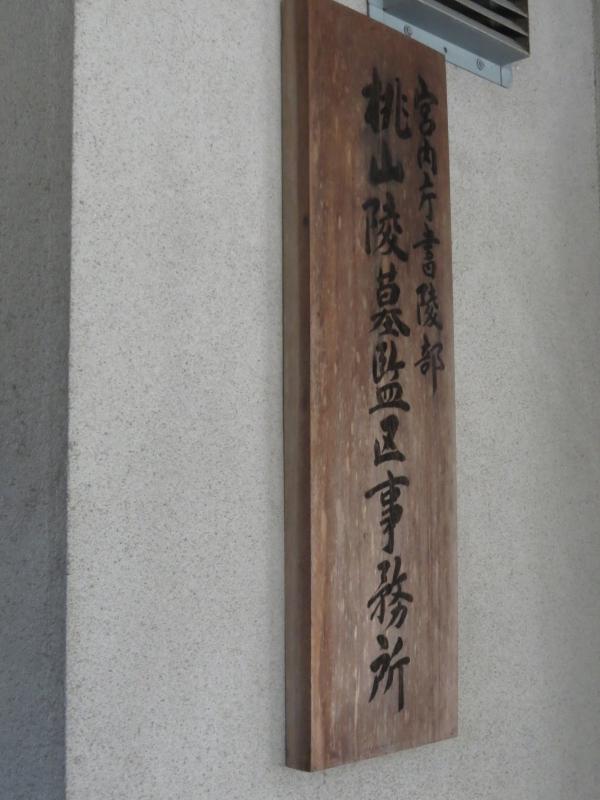 宮内庁書陵部
桃山陵墓監区事務所